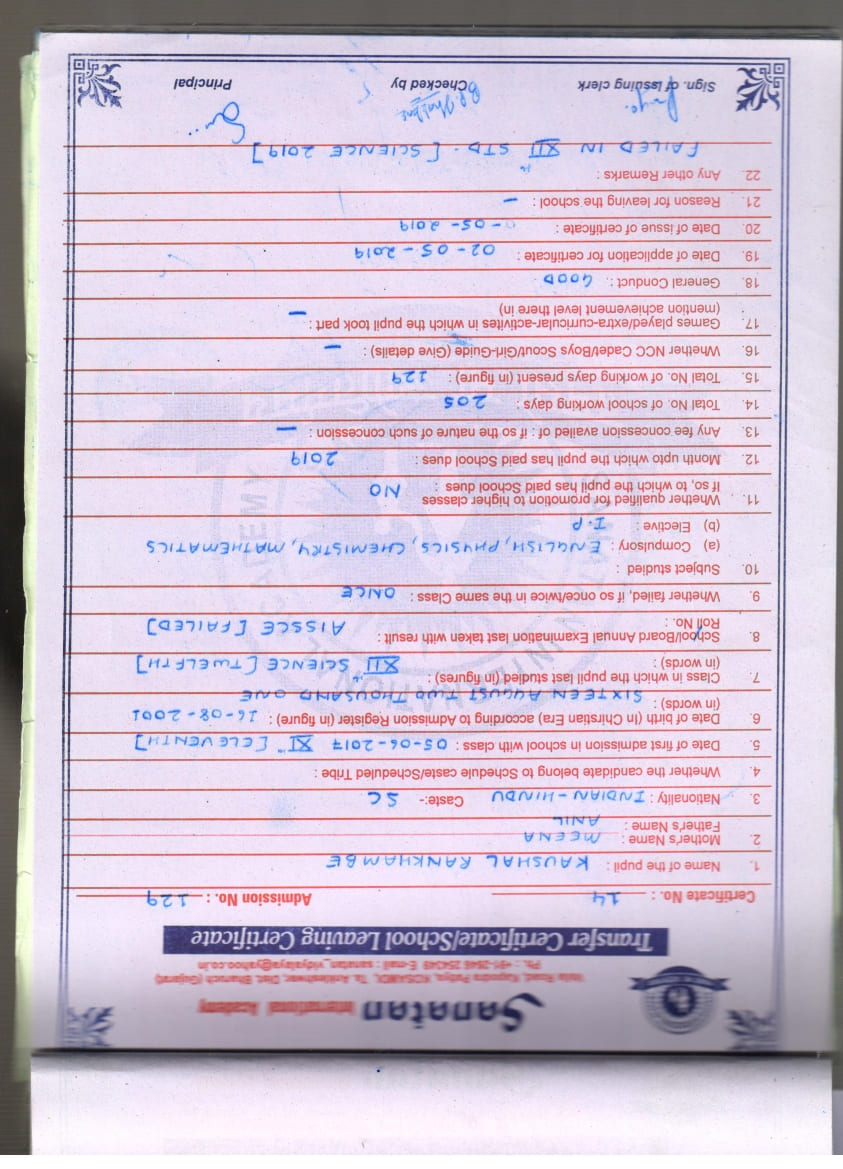 Sanatan International Academy
Valia Road, Kapodra Patiya, KOSAMDI, Ta. Ankleshwar, Dist. Bharuch (Gujarat)
Ph.: +91-2646 254349 E-mail : sanatan_vidyalaya@yahoo.co.in
Transfer Certificate/School Leaving Certificate
Certificate No. : 14 Admission No. : 129
1. Name of the pupil : KAUSHAL RANKHAMBE
2. Mother's Name : MEENA
Father's Name : ANIL
3. Nationality : INDIAN-HINDU Caste:- SC
4. Whether the candidate belong to Schedule caste/Scheduled Tribe :
5. Date of first admission in school with class : 05-06-2017 XI th [ELEVENTH]
6. Date of birth (In Chirstian Era) according to Admission Register (in figure) : 16-08-2001
(in words) : SIXTEEN AUGUST TWO THOUSAND ONE
7. Class in which the pupil last studied (in figures) : XII th SCIENCE [TWELFTH]
(in words) :
8. School/Board Annual Examination last taken with result :
Roll No. : AISSCE [FAILED]
9. Whether failed, if so once/twice in the same Class : ONCE
10. Subject studied :
(a) Compulsory : ENGLISH, PHYSICS, CHEMISTRY, MATHEMATICS
(b) Elective : I.P
11. Whether qualified for promotion to higher classes
If so, to which the pupil has paid School dues : NO
12. Month upto which the pupil has paid School dues : 2019
13. Any fee concession availed of : if so the nature of such concession : —
14. Total No. of school working days : 205
15. Total No. of working days present (in figure) : 129
16. Whether NCC Cadet/Boys Scout/Girl-Guide (Give details) : —
17. Games played/extra-curricular-activites in which the pupil took part : —
(mention achievement level there in)
18. General Conduct : GOOD
19. Date of application for certificate : 02-05-2019
20. Date of issue of certificate : -05-2019
21. Reason for leaving the school : —
22. Any other Remarks :
FAILED IN XII th STD - [SCIENCE 2019]
Sign. of issuing clerk Checked by Principal